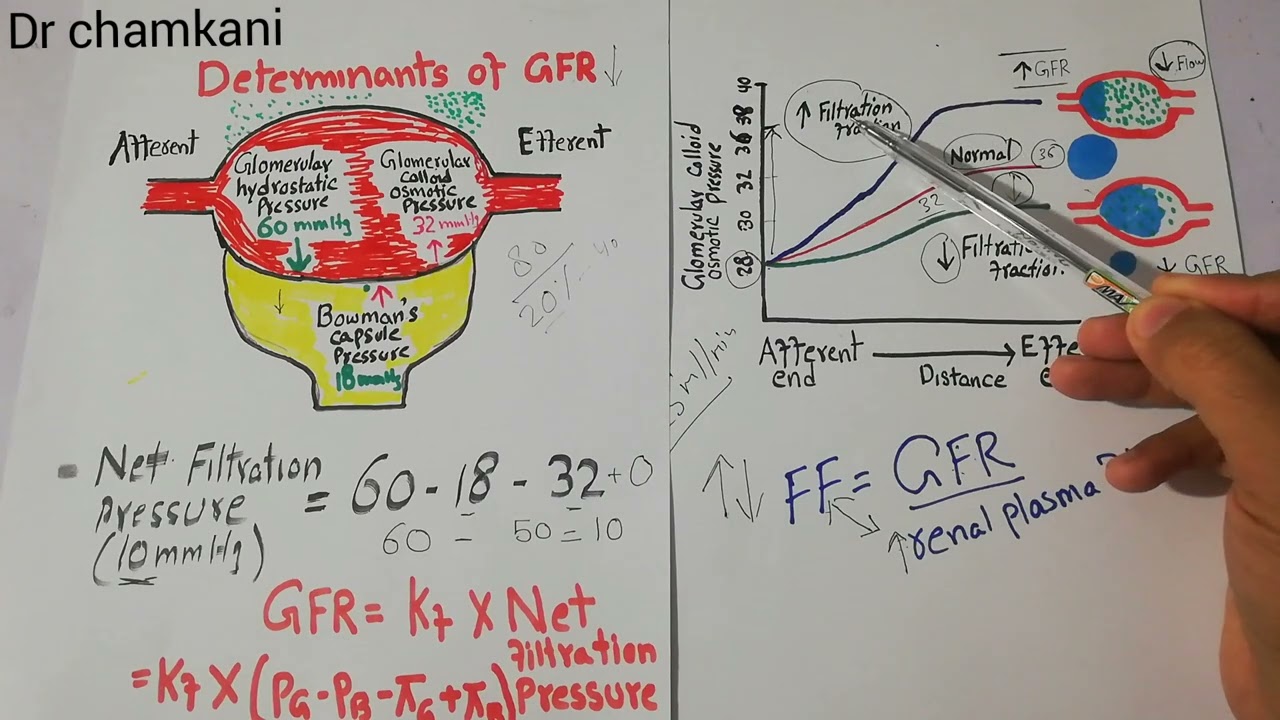 Dr chamkani
Determinants of GFR ↓
Afferent
Efferent
Glomerular
hydrostatic
Pressure
60 mmHg
↓
Glomerular
Colloid
osmotic
Pressure
32 mmHg
↑
↓
↑
Bowman's
capsule
Pressure
18 mmHg
80
20%
40
- Net Filtration
Pressure
(10 mmHg)
= 60 - 18 - 32 + 0
60 - 50 = 10
GFR = Kf X Net
Filtration
Pressure
= Kf X (PG - PB - πG + πB)
Glomerular Colloid
osmotic pressure
40
38
36
32
30
28
↑ Filtration
↑ GFR
↓ Flow
Normal
36
32
↓
↓
↓ GFR
Afferent
end
→
Distance
ml/min
↑↓
FF = GFR
↑ renal plasma
MA